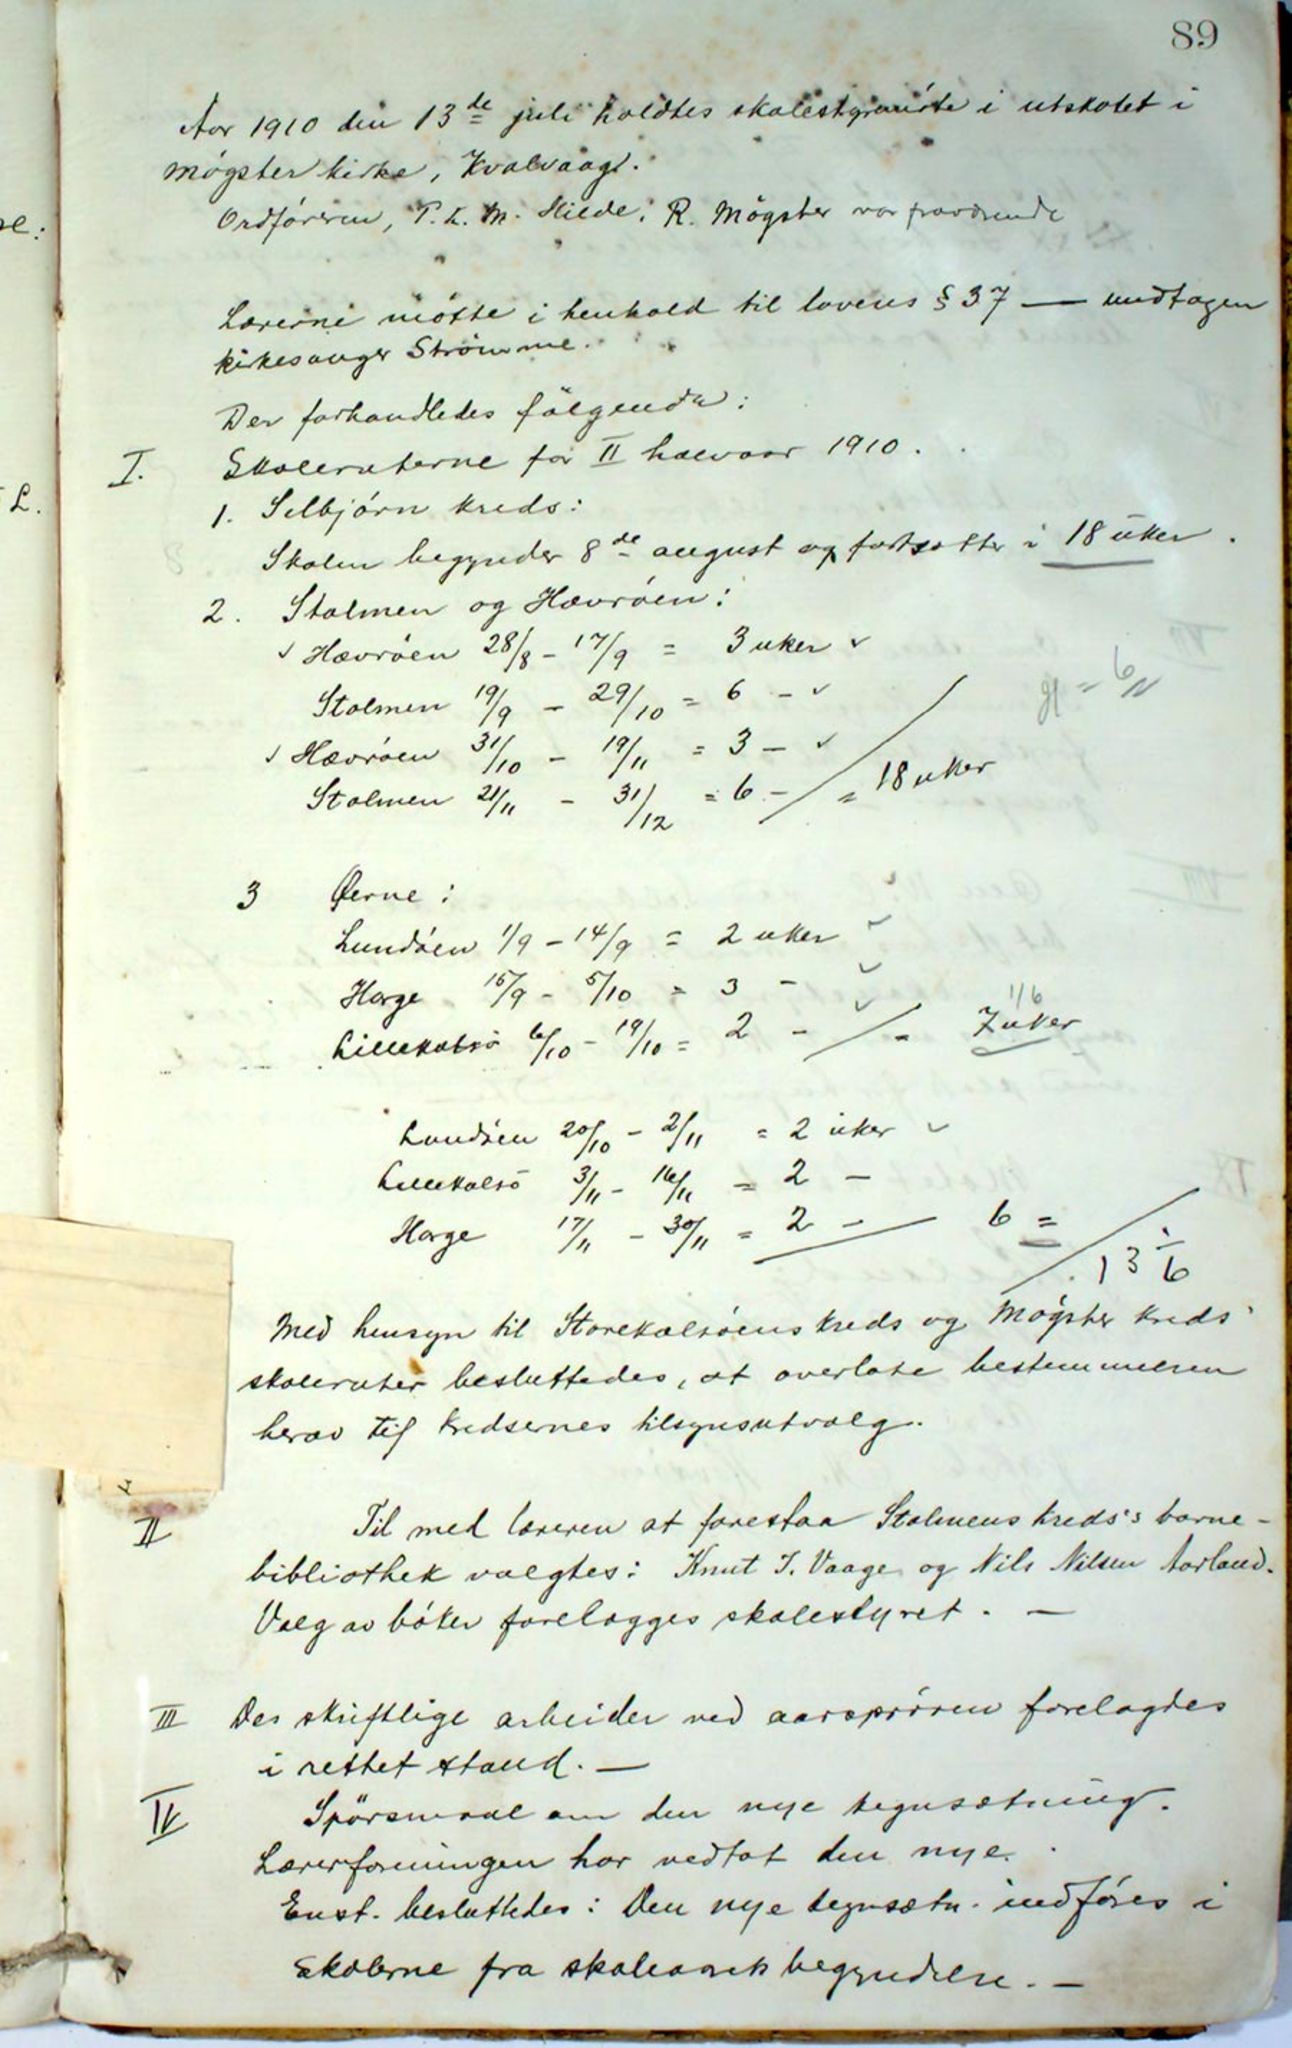 89
Aar 1910 den 13de juli holdtes skolestyremöte i utskotet i
Mögster kirke, Kvalvaag.
Ordföreren, P. L. M. Hilde, R. Mögster var fraværende
Lærerne mötte i henhold til lovens § 37 — undtagen
kirkesanger Strömme.
Der forhandledes fölgende:
I. Skoleruterne for II halvaar 1910.
1. Selbjörn kreds:
Skolen begynder 8de august og fortsætter i 18 uker.
2. Stolmen og Hævröen:
✓ Hævröen 28/8 - 17/9 = 3 uker ✓
Stolmen 19/9 - 29/10 = 6 - ✓
✓ Hævröen 31/10 - 19/11 = 3 - ✓
Stolmen 21/11 - 31/12 = 6 - / = 18 uker
3 Øerne:
Lundöen 1/9 - 14/9 = 2 uker ✓
Horge 15/9 - 5/10 = 3 - ✓
Lillekalsö 6/10 - 19/10 = 2 - ✓ / = 7 uker
1/6
Lundöen 20/10 - 2/11 = 2 uker ✓
Lillekalsö 3/11 - 16/11 = 2 -
Horge 17/11 - 30/11 = 2 - — 6 = / 13 1/6
Med hensyn til Storekalsöens kreds og Mögster kreds'
skoleruter besluttedes, at overlate bestemmelsen
herav til kredsernes tilsynsutvalg.
II Til med læreren at forestaa Stolmens kreds's barne-
bibliothek valgtes: Knut J. Vaage og Nils Nilsen Aarland.
Valg av böker forelægges skolestyret. —
III Des skriftlige arbeider ved aarspröven forelagdes
i rettet stand. —
IV Spörsmaal om den nye tegnsætning.
Lærerforeningen har vedtat den nye.
Enst. besluttedes: Den nye tegnsætn. indföres i
skolerne fra skoleaarets begyndelse. —